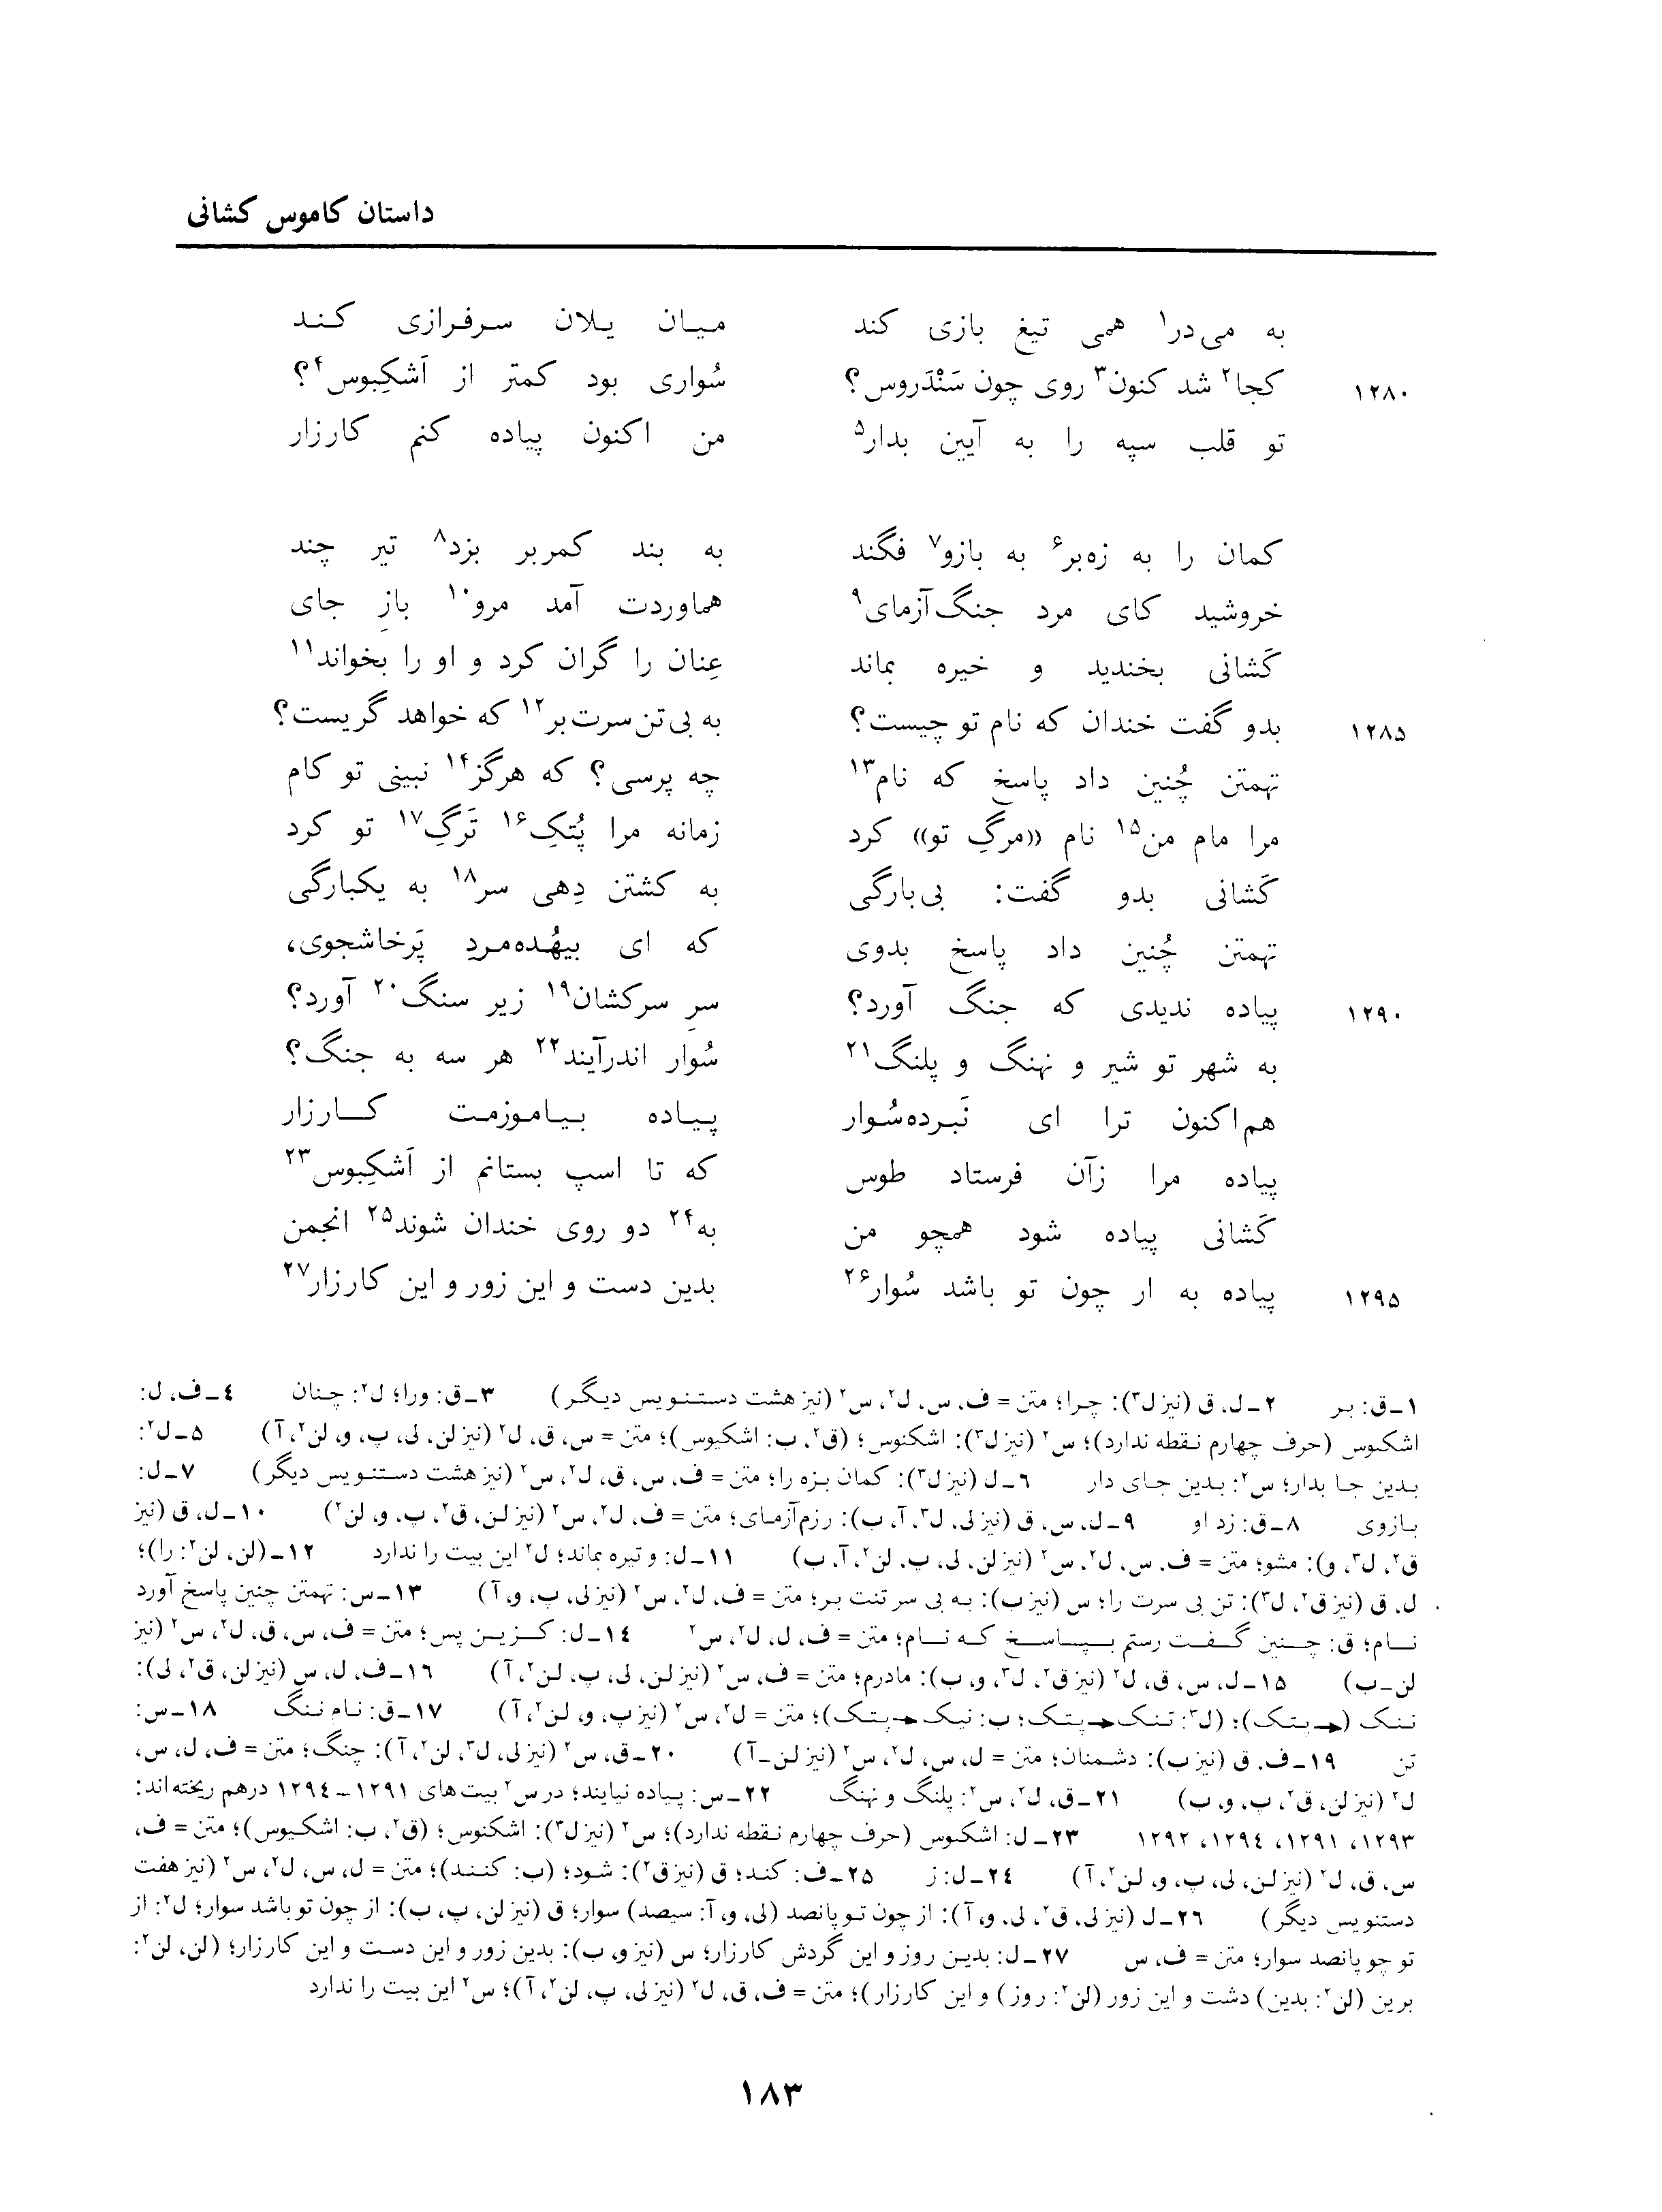 داستان کاموس کشانی
به می‌در۱ همی تیغ بازی کند میان یلان سرفرازی کند
۱۲۸۰ کجا۲ شد کنون۳ روی چون سَنْدَروس؟ سُواری بود کمتر از اَشکِبوس۴؟
تو قلب سپه را به آیین بدار۵ من اکنون پیاده کنم کارزار
کمان را به زه‌بر۶ به بازو۷ فگند به بند کمربر بزد۸ تیر چند
خروشید کای مرد جنگ‌آزمای۹ هماوردت آمد مرو۱۰ بازِ جای
کَشانی بخندید و خیره بماند عِنان را گران کرد و او را بخواند۱۱
۱۲۸۵ بدو گفت خندان که نام تو چیست؟ به بی‌تن سرت‌بر۱۲ که خواهد گریست؟
تهمتن چُنین داد پاسخ که نام۱۳ چه پرسی؟ که هرگز۱۴ نبینی تو کام
مرا مام من۱۵ نام «مرگِ تو» کرد زمانه مرا پُتکِ۱۶ تَرگِ۱۷ تو کرد
کَشانی بدو گفت: بی‌بارگی به کشتن دِهی سر۱۸ به یکبارگی
تهمتن چُنین داد پاسخ بدوی که ای بیهُده‌مردِ پَرخاشجوی،
۱۲۹۰ پیاده ندیدی که جنگ آورد؟ سرِ سرکشان۱۹ زیر سنگ۲۰ آورد؟
به شهر تو شیر و نهنگ و پلنگ۲۱ سُوار اندرآیند۲۲ هر سه به جنگ؟
هم‌اکنون ترا ای نَبرده‌سُوار پیاده بیاموزمت کارزار
پیاده مرا زآن فرستاد طوس که تا اسپ بستانم از اَشکِبوس۲۳
کَشانی پیاده شود همچو من به۲۴ دو روی خندان شوند۲۵ انجمن
۱۲۹۵ پیاده به ار چون تو باشد سُوار۲۶ بدین دست و این زور و این کارزار۲۷
۱ـ ق: بر ۲ـ ل، ق (نیز ل۳): چرا؛ متن = ف، س، ل۲، س۲ (نیز هشت دستنویس دیگر) ۳ـ ق: ورا؛ ل۲: چنان ۴ـ ف، ل:
اشکىوس (حرف چهارم نقطه ندارد)؛ س۲ (نیز ل۳): اشکنوس؛ (ق۲، ب: اشکیوس)؛ متن = س، ق، ل۲ (نیز لن، لی، پ، و، لن۲، آ) ۵ـ ل۲:
بدین جا بدار؛ س۲: بدین جای دار ۶ـ ل (نیز ل۳): کمان بزه را؛ متن = ف، س، ق، ل۲، س۲ (نیز هشت دستنویس دیگر) ۷ـ ل:
بازوی ۸ـ ق: زد او ۹ـ ل، س، ق (نیز لی، ل۳، آ، ب): رزم‌آزمای؛ متن = ف، ل۲، س۲ (نیز لن، ق۲، پ، و، لن۲) ۱۰ـ ل، ق (نیز
ق۲، ل۳، و): مشو؛ متن = ف، س، ل۲، س۲ (نیز لن، لی، پ، لن۲، آ، ب) ۱۱ـ ل: و تیره بماند؛ ل۲ این بیت را ندارد ۱۲ـ (لن، لن۲: را)؛
ل، ق (نیز ق۲، ل۳): تن بی سرت را؛ س (نیز ب): به بی سر تنت بر؛ متن = ف، ل۲، س۲ (نیز لی، پ، و، آ) ۱۳ـ س: تهمتن چنین پاسخ آورد
نام؛ ق: چنین گفت رستم بپاسخ که نام؛ متن = ف، ل، ل۲، س۲ ۱۴ـ ل: کزین پس؛ متن = ف، س، ق، ل۲، س۲ (نیز
لن-ب) ۱۵ـ ل، س، ق، ل۲ (نیز ق۲، ل۳، و، ب): مادرم؛ متن = ف، س۲ (نیز لن، لی، پ، لن۲، آ) ۱۶ـ ف، ل، س (نیز لن، ق۲، لی):
ننک (← پتک)؛ (ل۳: تنک ← پتک؛ ب: نیک ← پتک)؛ متن = ل۲، س۲ (نیز پ، و، لن۲، آ) ۱۷ـ ق: نام ننگ ۱۸ـ س:
تن ۱۹ـ ف، ق (نیز ب): دشمنان؛ متن = ل، س، ل۲، س۲ (نیز لن-آ) ۲۰ـ ق، س۲ (نیز لی، ل۳، لن۲، آ): چنگ؛ متن = ف، ل، س،
ل۲ (نیز لن، ق۲، پ، و، ب) ۲۱ـ ق، ل۲، س۲: پلنگ و نهنگ ۲۲ـ س: پیاده نیایند؛ در س۲ بیت‌های ۱۲۹۱ - ۱۲۹۴ درهم ریخته‌اند:
۱۲۹۳، ۱۲۹۱، ۱۲۹۴، ۱۲۹۲ ۲۳ـ ل: اشکىوس (حرف چهارم نقطه ندارد)؛ س۲ (نیز ل۳): اشکنوس؛ (ق۲، ب: اشکیوس)؛ متن = ف،
س، ق، ل۲ (نیز لن، لی، پ، و، لن۲، آ) ۲۴ـ ل: ز ۲۵ـ ف: کند؛ ق (نیز ق۲): شود؛ (ب: کنند)؛ متن = ل، س، ل۲، س۲ (نیز هفت
دستنویس دیگر) ۲۶ـ ل (نیز لی، ق۲، لی، و، آ): از چون تو پانصد (لی، و، آ: سیصد) سوار؛ ق (نیز لن، پ، ب): از چون تو باشد سوار؛ ل۲: از
تو چو پانصد سوار؛ متن = ف، س ۲۷ـ ل: بدین روز و این گردش کارزار؛ س (نیز و، ب): بدین زور و این دست و این کارزار؛ (لن، لن۲:
برین (لن۲: بدین) دشت و این زور (لن۲: روز) و این کارزار)؛ متن = ف، ق، ل۲ (نیز لی، پ، لن۲، آ)؛ س۲ این بیت را ندارد
۱۸۳